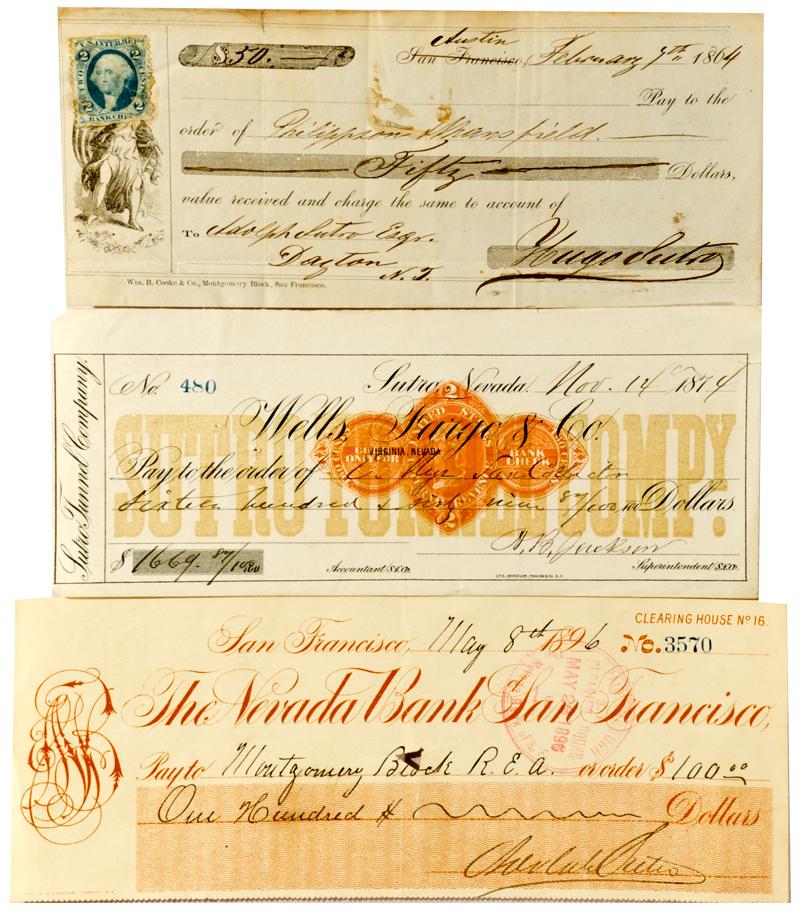 U.S. INTER. REV.
TWO CENTS
2 2
BANK CHECK
$50.—
Austin
San Francisco, February 7th 1864
Pay to the
order of Philippson & Mansfield.
Fifty Dollars,
value received and charge the same to account of
To Adolph Sutro Esqr.
Dayton
N.T.
Hugo Sutro
Wm. B. Cooke & Co., Montgomery Block, San Francisco.
Sutro Tunnel Company.
No. 480
Sutro, Nevada. Nov. 14 1874
Wells, Fargo & Co.
VIRGINIA, NEVADA
SUTRO TUNNEL COMP'Y.
2
UNITED STATES
BANK CHECK
Pay to the order of Tax Collector
Sixteen hundred & sixty nine 87/100 Dollars
$ 1669. 87/100
H. B. Jackson
Accountant S.T.Co.
Superintendent S.T.Co.
CLEARING HOUSE No 16.
San Francisco, May 8th 1896 No. 3570
The Nevada Bank of San Francisco,
MAY 1896
Pay to Montgomery Block R. E. A. or order $ 100.00
One Hundred & Dollars
Adolph Sutro